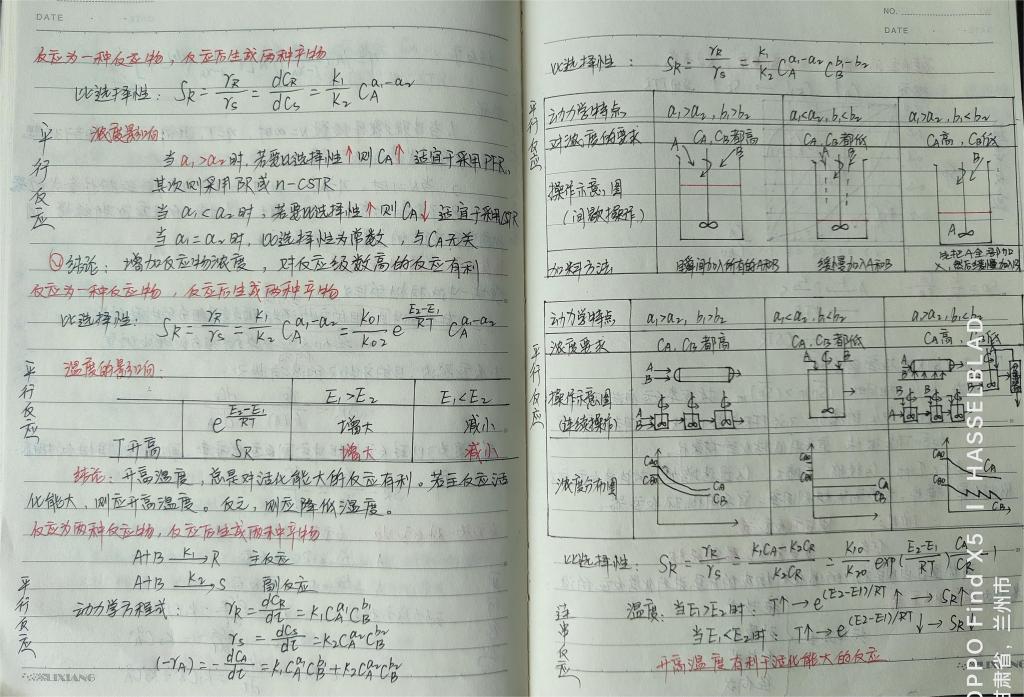 DATE
反应为一种反应物，反应后生成两种产物
比选择性：S_R = r_R/r_S = dC_R/dC_S = k₁/k₂ C_A^(a₁-a₂)
平行反应
浓度影响：
当a₁>a₂时，若要比选择性↑则C_A↑ 适宜于采用PFR，
其次则采用BR或n-CSTR
当a₁<a₂时，若要比选择性↑则C_A↓ 适宜于采用CSTR
当a₁=a₂时，比选择性为常数，与C_A无关
结论：增加反应物浓度，对反应级数高的反应有利
反应为一种反应物，反应后生成两种产物
比选择性：S_R = r_R/r_S = k₁/k₂ C_A^(a₁-a₂) = k₀₁/k₀₂ e^((E₂-E₁)/RT) C_A^(a₁-a₂)
平行反应
温度的影响：
E₁>E₂ E₁<E₂
e^((E₂-E₁)/RT) 增大 减小
T升高 S_R 增大 减小
结论：升高温度，总是对活化能大的反应有利。若主反应活
化能大，则应升高温度。反之，则应降低温度。
反应为两种反应物，反应后生成两种产物
A+B —k₁→ R 主反应
A+B —k₂→ S 副反应
平行反应
动力学方程式：r_R = dC_R/dt = k₁C_A^a₁C_B^b₁
r_S = dC_S/dt = k₂C_A^a₂C_B^b₂
(-r_A) = -dC_A/dt = k₁C_A^a₁C_B^b₁ + k₂C_A^a₂C_B^b₂
LIXIANG
NO.
DATE
比选择性：S_R = r_R/r_S = k₁/k₂ C_A^(a₁-a₂) C_B^(b₁-b₂)
平行反应
动力学特点 a₁>a₂, b₁>b₂ a₁<a₂, b₁<b₂ a₁>a₂, b₁<b₂
对浓度的要求 C_A, C_B都高 C_A, C_B都低 C_A高，C_B低
操作示意图 A B A B B
(间歇操作) A
加料方法 瞬间加入所有的A和B 缓慢加入A和B 先把A全部加入，然后缓慢加入B
平行反应
动力学特点 a₁>a₂, b₁>b₂ a₁<a₂, b₁<b₂ a₁>a₂, b₁<b₂
浓度要求 C_A, C_B都高 C_A, C_B都低 C_A高，低
操作示意图 A B A B A B
(连续操作) A B B B B A
浓度分布图 C_A0 C_B0 C_A C_B C_A0 C_B0 C_A C_B C_A0 C_B0 C_A C_B
比选择性：S_R = r_R/r_S = (k₁C_A-k₂C_R)/(k₂C_R) = k₁₀/k₂₀ exp((E₂-E₁)/RT) C_A/C_R - 1
连串反应
温度：当E₁>E₂时：T↑→e^((E2-E1)/RT)↑→S_R↑
当E₁<E₂时：T↑→e^((E2-E1)/RT)↓→S_R↓
升高温度有利于活化能大的反应
OPPO Find X5 | HASSELBLAD
甘肃省，兰州市